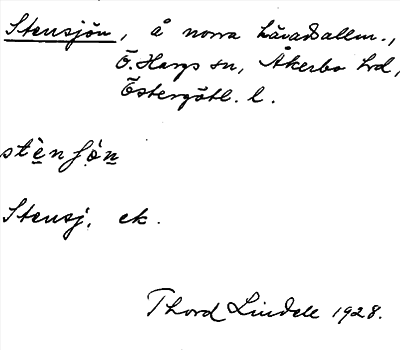 Stensjön, å norra häradsallm.,
Ö. Hargs sn, Åkerbo hd,
Östergötl. l.
stènʃò̩n
Stensj. ek.
Thord Lindell 1928.